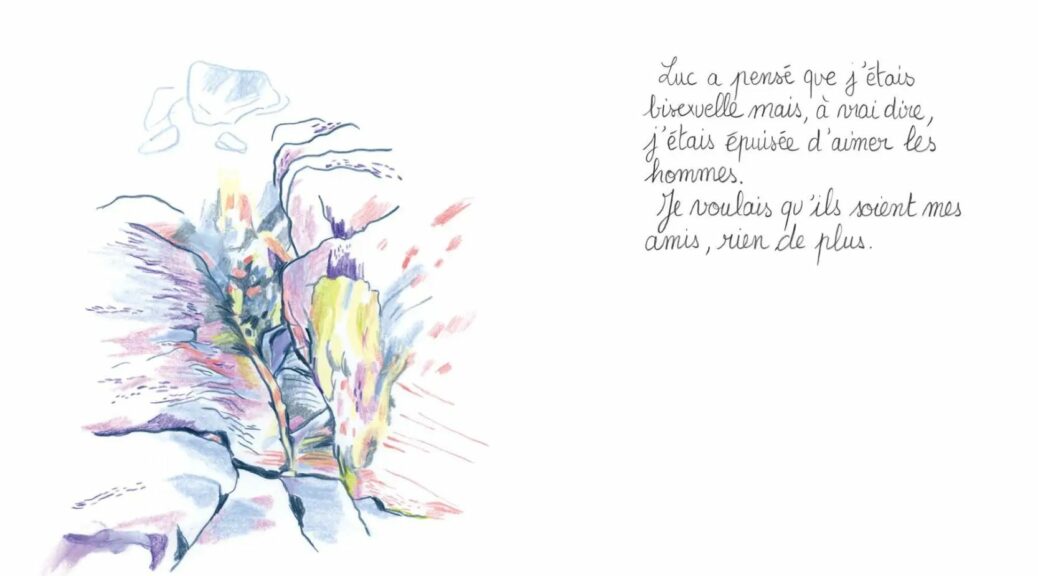 Luc a pensé que j'étais
bisexuelle mais, à vrai dire,
j'étais épuisée d'aimer les
hommes.
Je voulais qu'ils soient mes
amis, rien de plus.